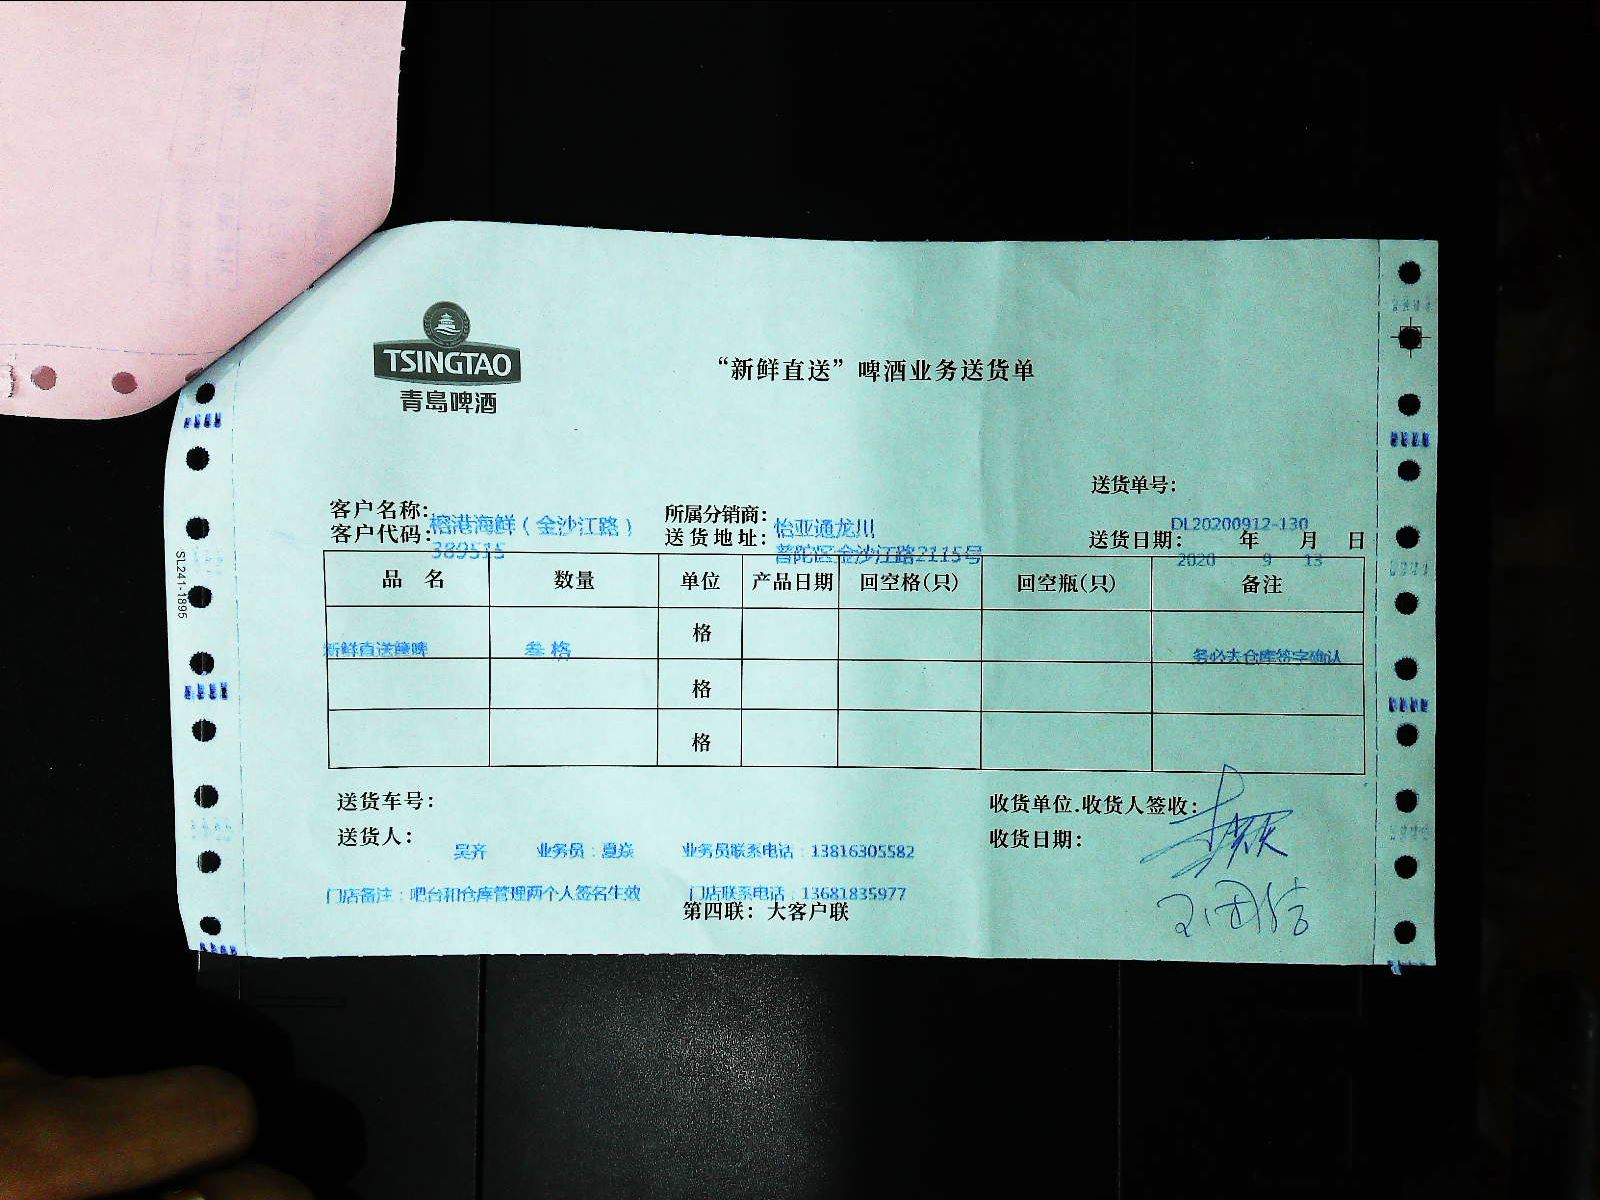 TSINGTAO
青島啤酒
“新鲜直送”啤酒业务送货单
送货单号：
DL20200912-130
客户名称：榕港海鲜（金沙江路）
所属分销商：怡亚通龙川
客户代码：389515
送货地址：普陀区金沙江路2115号
送货日期：2020年9月13日
品名 数量 单位 产品日期 回空格(只) 回空瓶(只) 备注
新鲜直送 叁格 格 务必去仓库签字确认
格
格
送货车号：
收货单位.收货人签收：
送货人：吴齐 业务员：夏焱 业务员联系电话：13816305582
收货日期：
门店备注：吧台和仓库管理两个人签名生效 门店联系电话：13681835977
第四联：大客户联
SL241-1895